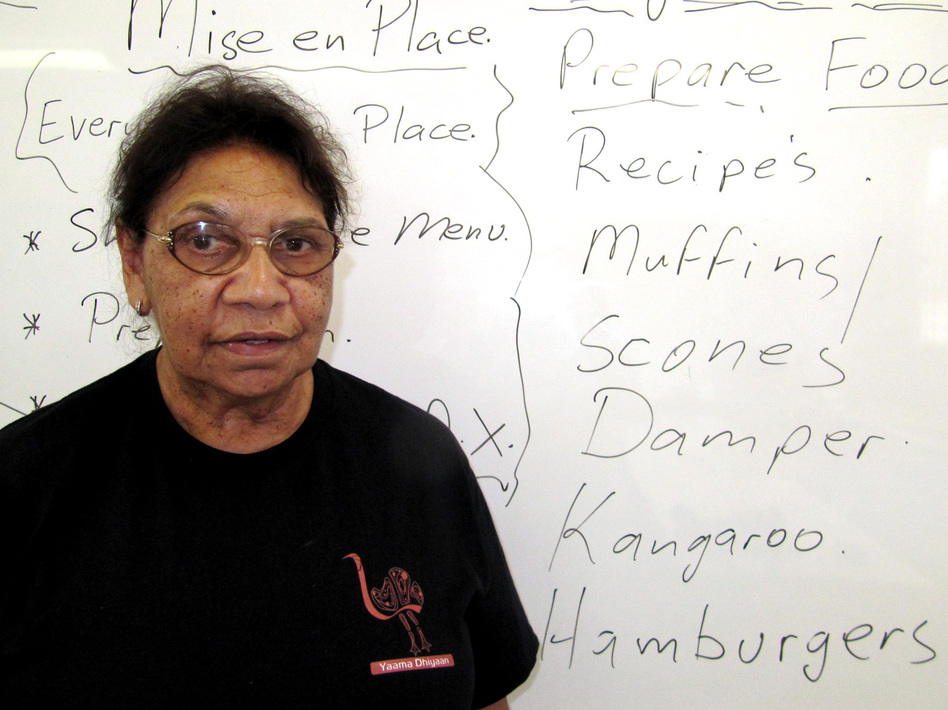 Mise en Place.
Every Place.
* Menu.
*
*
X.
Prepare Food
Recipe's.
Muffins/
Scones
Damper.
Kangaroo.
Hamburgers
Yaama Dhiyaan